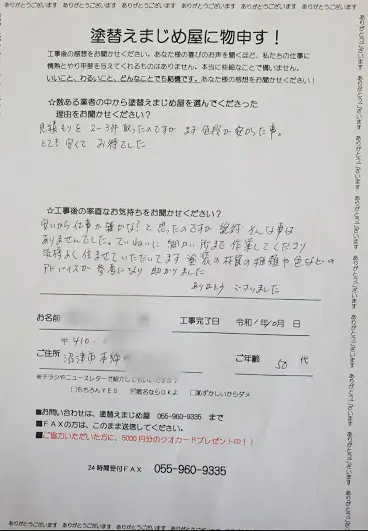 ありがとうございます ありがとうございます ありがとうございます ありがとうございます ありがとうございます
塗替えまじめ屋に物申す！
工事後の感想をお聞かせください。あなた様の喜びのお声を聞くほど、私たちの仕事に
情熱とやり甲斐を与えてくれるものはありません。本当に些細なことで構いません。
いいこと、わるいこと、どんなことでも結構です。あなた様の感想をお聞かせください！
☆数ある業者の中から塗替えまじめ屋を選んでくださった
理由をお聞かせください？
見積もりを2~3件取ったのですが まず値段が安かった事。
とても安くて お得でした
☆工事後の率直なお気持ちをお聞かせください？
安いから仕事が雑かな？と思ったのですが 絶対そんな事は
ありませんでした。ていねいに細かい所まで作業してくださり
気持よく住ませていただいてます 塗装の材質の種類や色などの
アドバイスが参考になり助かりました
ありがとうございました
お名前
工事完了日 令和1年10月 日
〒410-
ご住所 沼津市本
ご年齢 50代
※チラシやニュースレターで紹介してもいいですか？
□もちろんYES ☑匿名ならOKよ □恥ずかしいからダメ
■お問い合わせは、塗替えまじめ屋 055-960-9335 まで
■FAXの方は、このまま送信してください。
■ご協力いただいた方に、5000円分のクオカードプレゼント中！！
24時間受付FAX 055-960-9335
ありがとうございます ありがとうございます ありがとうございます ありがとうございます ありがとうございます